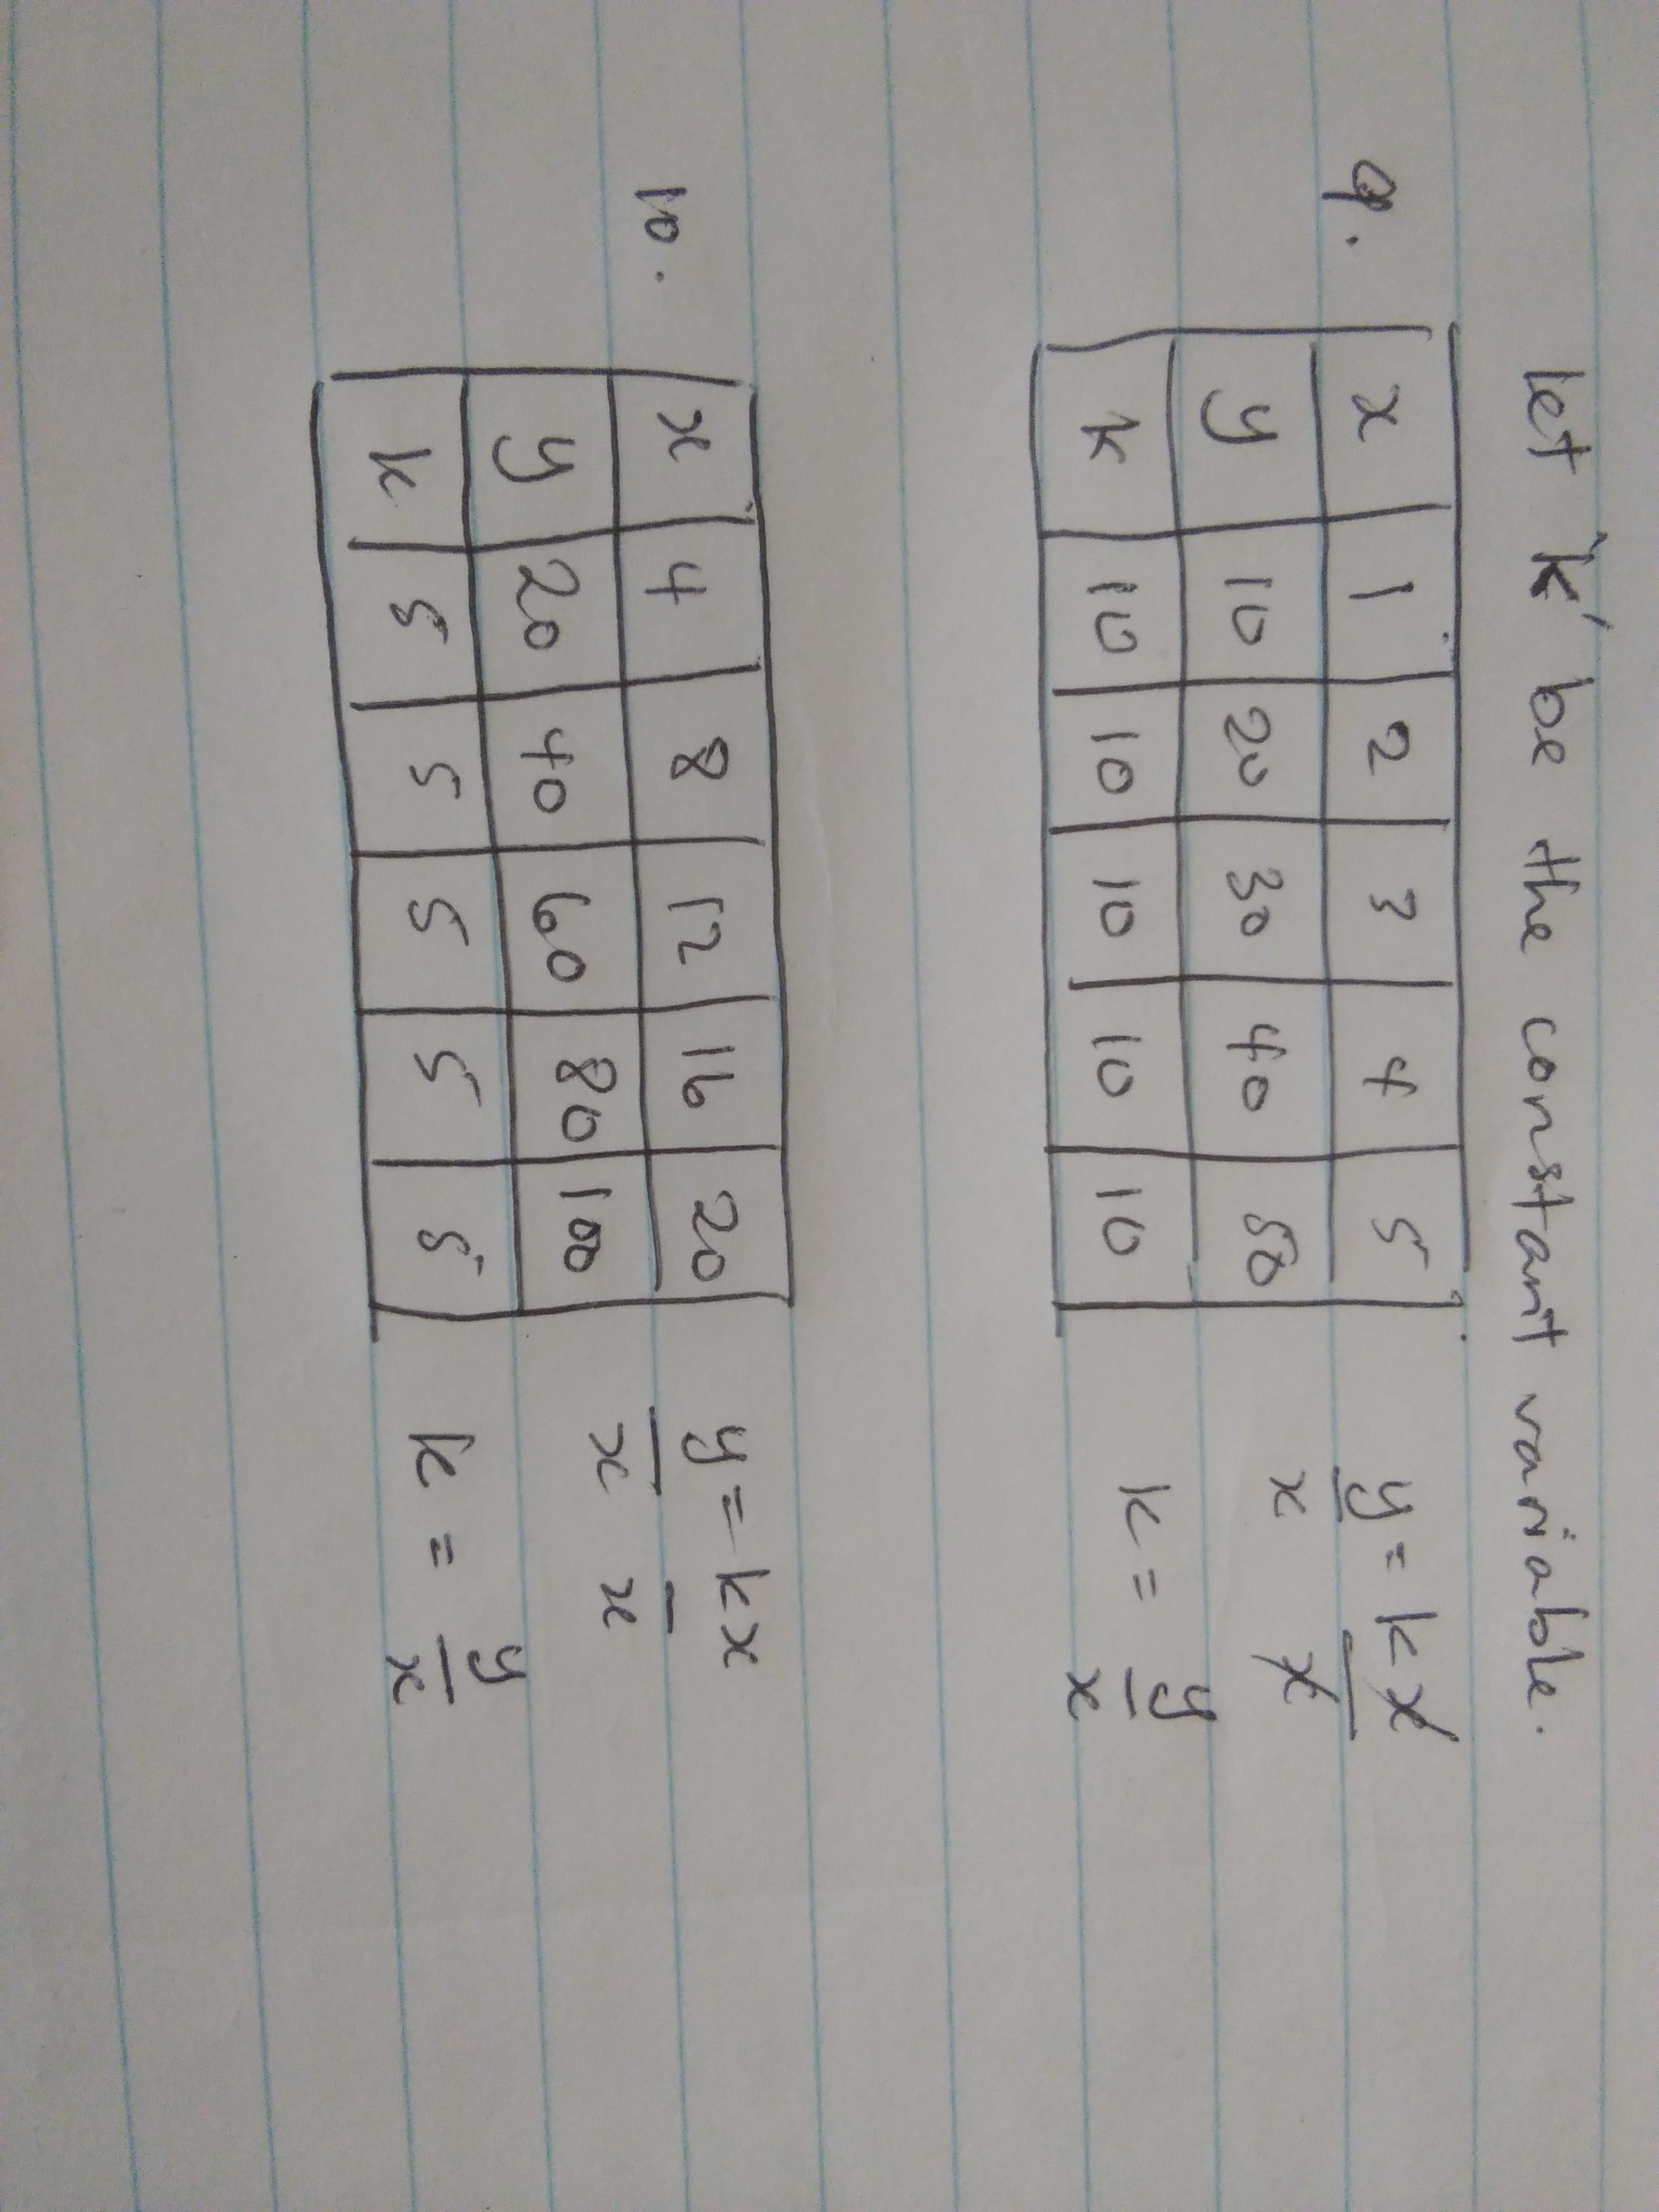 let 'k' be the constant variable.
9.
x 1 2 3 4 5
y 10 20 30 40 50
k 10 10 10 10 10
y = kx
x x
k = y
x
10.
x 4 8 12 16 20
y 20 40 60 80 100
k 5 5 5 5 5
y = kx
x x
k = y
x